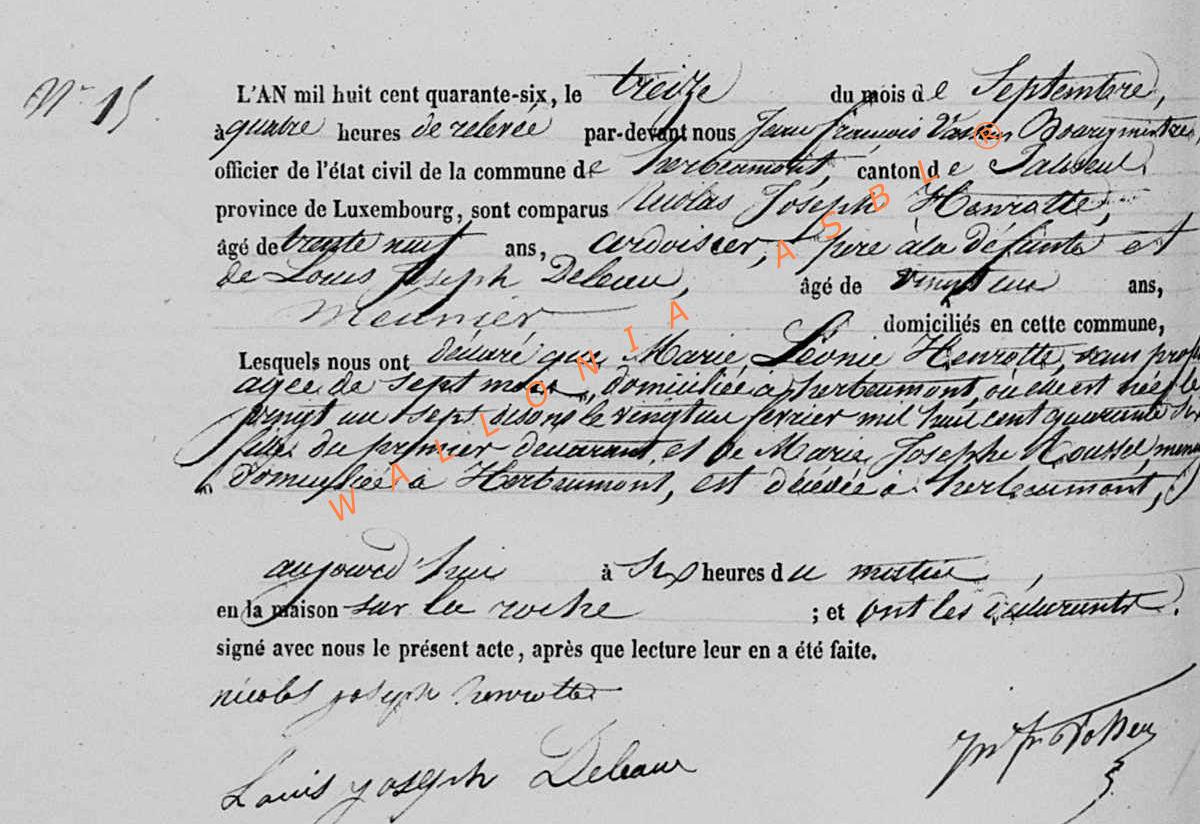 N° 15.
L'AN mil huit cent quarante-six, le treize du mois de Septembre,
à quatre heures de relevée par-devant nous Jean françois Bourgmestre,
officier de l'état civil de la commune de herbeumont, canton de Paliseul
province de Luxembourg, sont comparus Nicolas Joseph Henrotte,
âgé de trente nuit ans, ardoisier, père à la défunte et
de Louis Joseph Deleau, âgé de vingt un ans,
Meunier domiciliés en cette commune,
Lesquels nous ont déclaré que Marie Léonie Henrotte, sans prof
agée de sept mois, domiciliée à herbeumont, où elle est née le
vingt un sept disons le vingt un fevrier mil huit cent quarante six
fille du premier déclarant, et de Marie Josephe Roussel
domiciliée à Herbeumont, est décédée à herbeumont,
aujourd'hui à six heures du matin,
en la maison sur la roche ; et ont les déclarants.
signé avec nous le présent acte, après que lecture leur en a été faite.
nicolas joseph henrotte
Louis joseph Deleau
WALLONIA ASBL ®